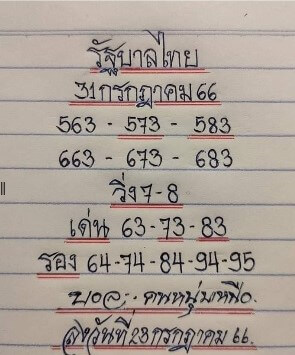 รัฐบาลไทย
31 กรกฎาคม 66
563 - 573 - 583
663 - 673 - 683
วิ่ง 7-8
เด่น 63-73-83
รอง 64-74-84-94-95
บอล: คนหนุ่มเหนือ.
ลงวันที่ 23 กรกฎาคม 66.